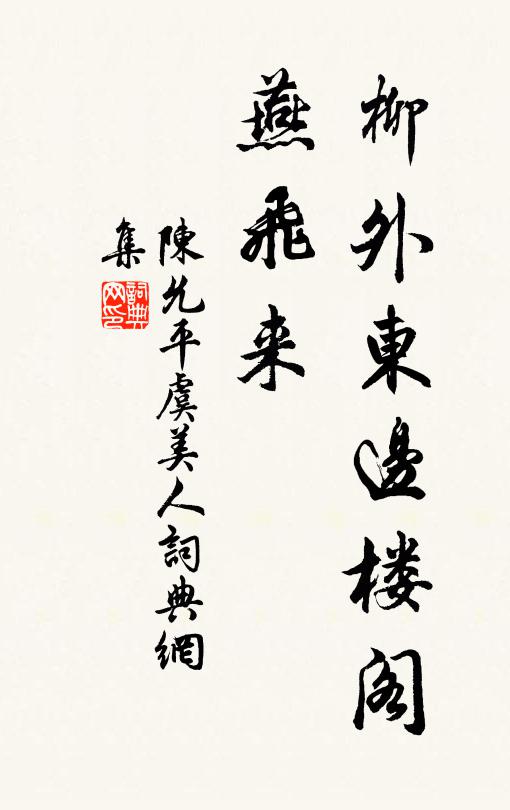 柳外東邊楼阁
燕飛来
陳允平虞美人詞典網
集
詞典网印